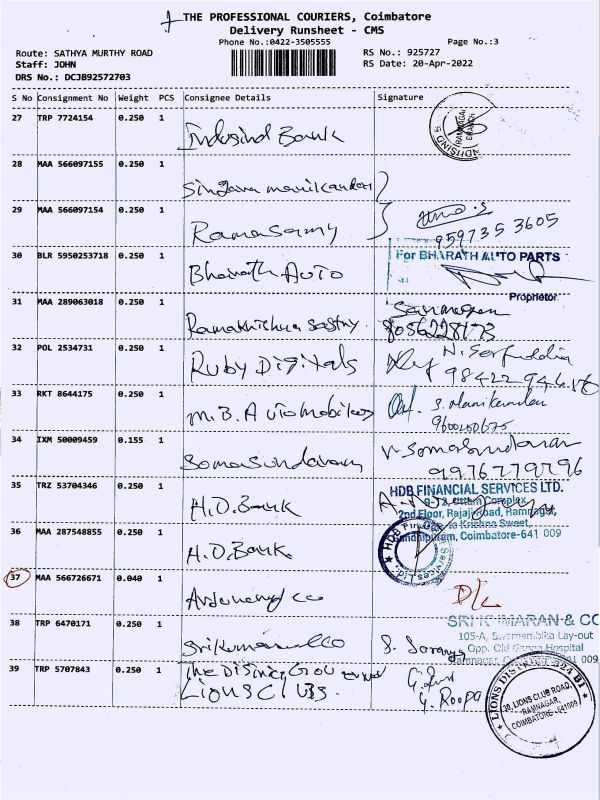 THE PROFESSIONAL COURIERS, Coimbatore
Delivery Runsheet - CMS
Phone No.:0422-3505555
Page No.:3
Route: SATHYA MURTHY ROAD
RS No.: 925727
Staff: JOHN
RS Date: 20-Apr-2022
DRS No.: DCJB92572703
S No Consignment No Weight PCS Consignee Details Signature
27 TRP 7724154 0.250 1
Indusind Bank
RAMNAGAR BRANCH
28 MAA 566097155 0.250 1
Singara manikandan
29 MAA 566097154 0.250 1
Ramasamy
959735 3605
30 BLR 5950253718 0.250 1
Bharath Auto
For BHARATH AUTO PARTS
Proprietor
31 MAA 289063018 0.250 1
Ramakrishna Sastry.
8056228173
32 POL 2534731 0.250 1
Ruby Digitals
33 RKT 8644175 0.250 1
M.B. Automobiles
S. Manikandan
9600450675
34 IXM 50009459 0.155 1
Somasundaram
V. Somasundaram
9976779796
35 TRZ 53704346 0.250 1
H.D. Bank
HDB FINANCIAL SERVICES LTD.
2nd Floor, Rajaji Road, Ramnagar,
Krishna Sweet,
Coimbatore-641 009
36 MAA 287548855 0.250 1
H.D. Bank.
37 MAA 566726671 0.040 1
D/L
38 TRP 6470171 0.250 1
Srikumaran & co
SRI KUMARAN & CO
105-A, Swarnambika Lay-out
Opp. Old Ganga Hospital
009
39 TRP 5707843 0.250 1
The District Gov
Lions Clubs.
G. Roopa
LIONS DISTRICT 324 B1
30, LIONS CLUB ROAD,
RAMNAGAR,
COIMBATORE - 641009